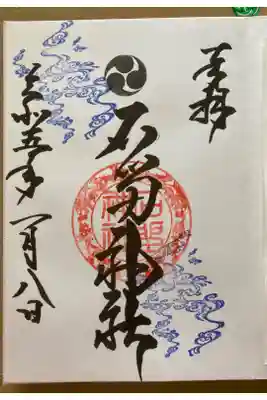 奉拝
石留神社
令和五年一月八日